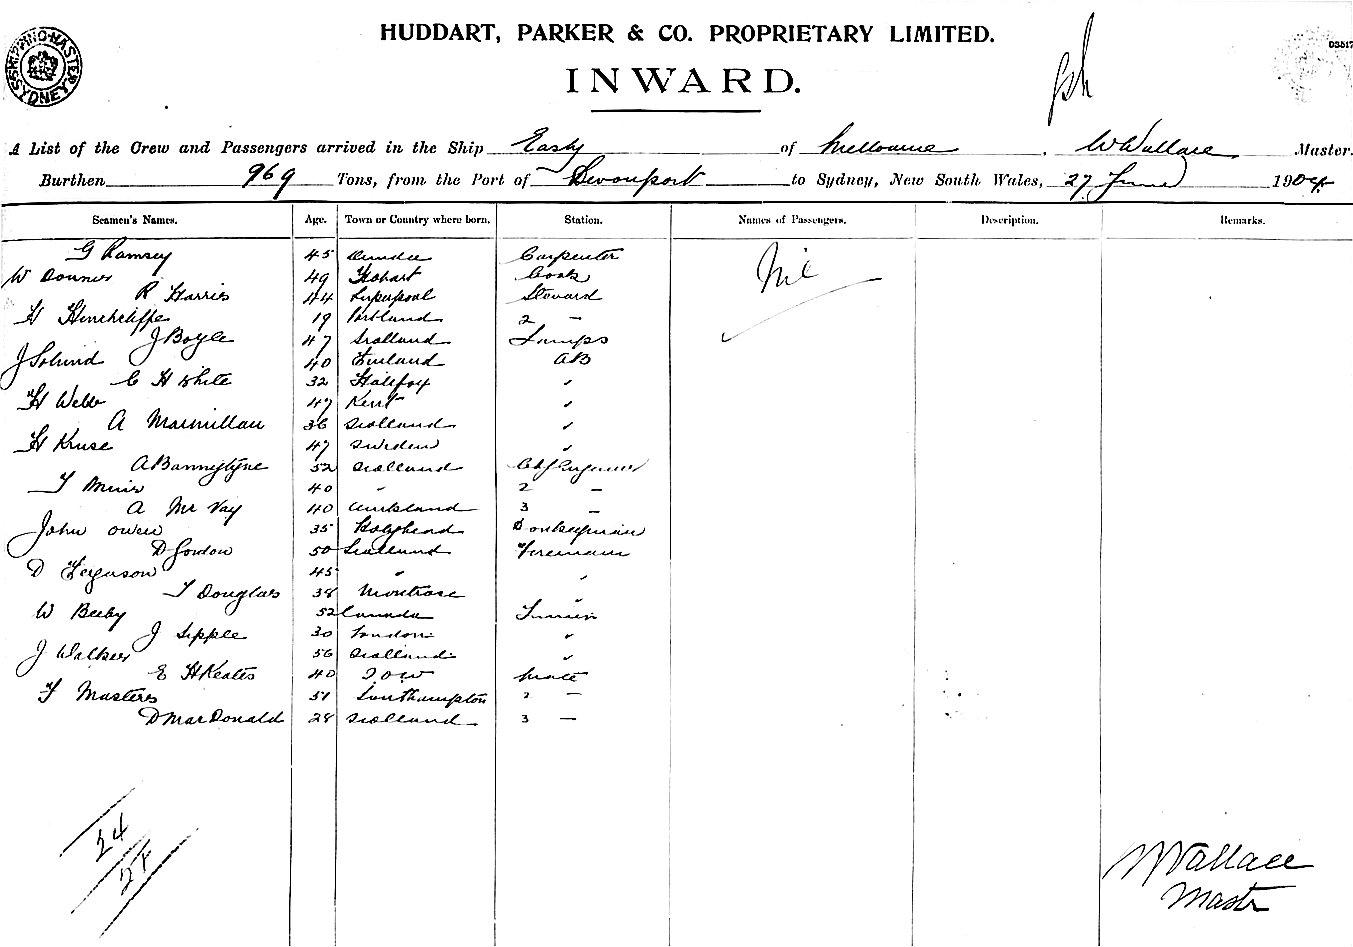 HUDDART, PARKER & CO. PROPRIETARY LIMITED.
INWARD.
SHIPPING MASTER SYDNEY
D3517
A List of the Crew and Passengers arrived in the Ship Easby of Melbourne, W Wallace Master.
Burthen 969 Tons, from the Port of Devonport to Sydney, New South Wales, 27 June 1904
Seamen's Names. Age. Town or Country where born. Station. Names of Passengers. Description. Remarks.
G Ramsey 45 Dundee Carpenter Nil
W Downes 49 Hobart Cook
R Harris 44 Liverpool Steward
H Hinchcliffe 19 Portland 2 -
J Boyle 47 Scotland Lamps
J Solund 40 Finland AB
C H White 32 Halifax "
H Webb 47 Kent "
A Macmillan 36 Scotland "
H Kruse 47 Sweden "
A Bannystyne 52 Scotland Chf Engineer
T Muir 40 " 2 -
A Mc Vay 40 Auckland 3 -
John Owen 35 Holyhead Donkeyman
D Gordon 50 Scotland Fireman
D Ferguson 45 " "
T Douglas 38 Montrose "
W Beeby 52 Canada Trimmer
J Sipple 30 London "
J Walker 56 Scotland "
E H Keates 40 I O W Mate
F Masters 51 Southampton 2 -
D MacDonald 28 Scotland 3 -
24
24
W Wallace
Master